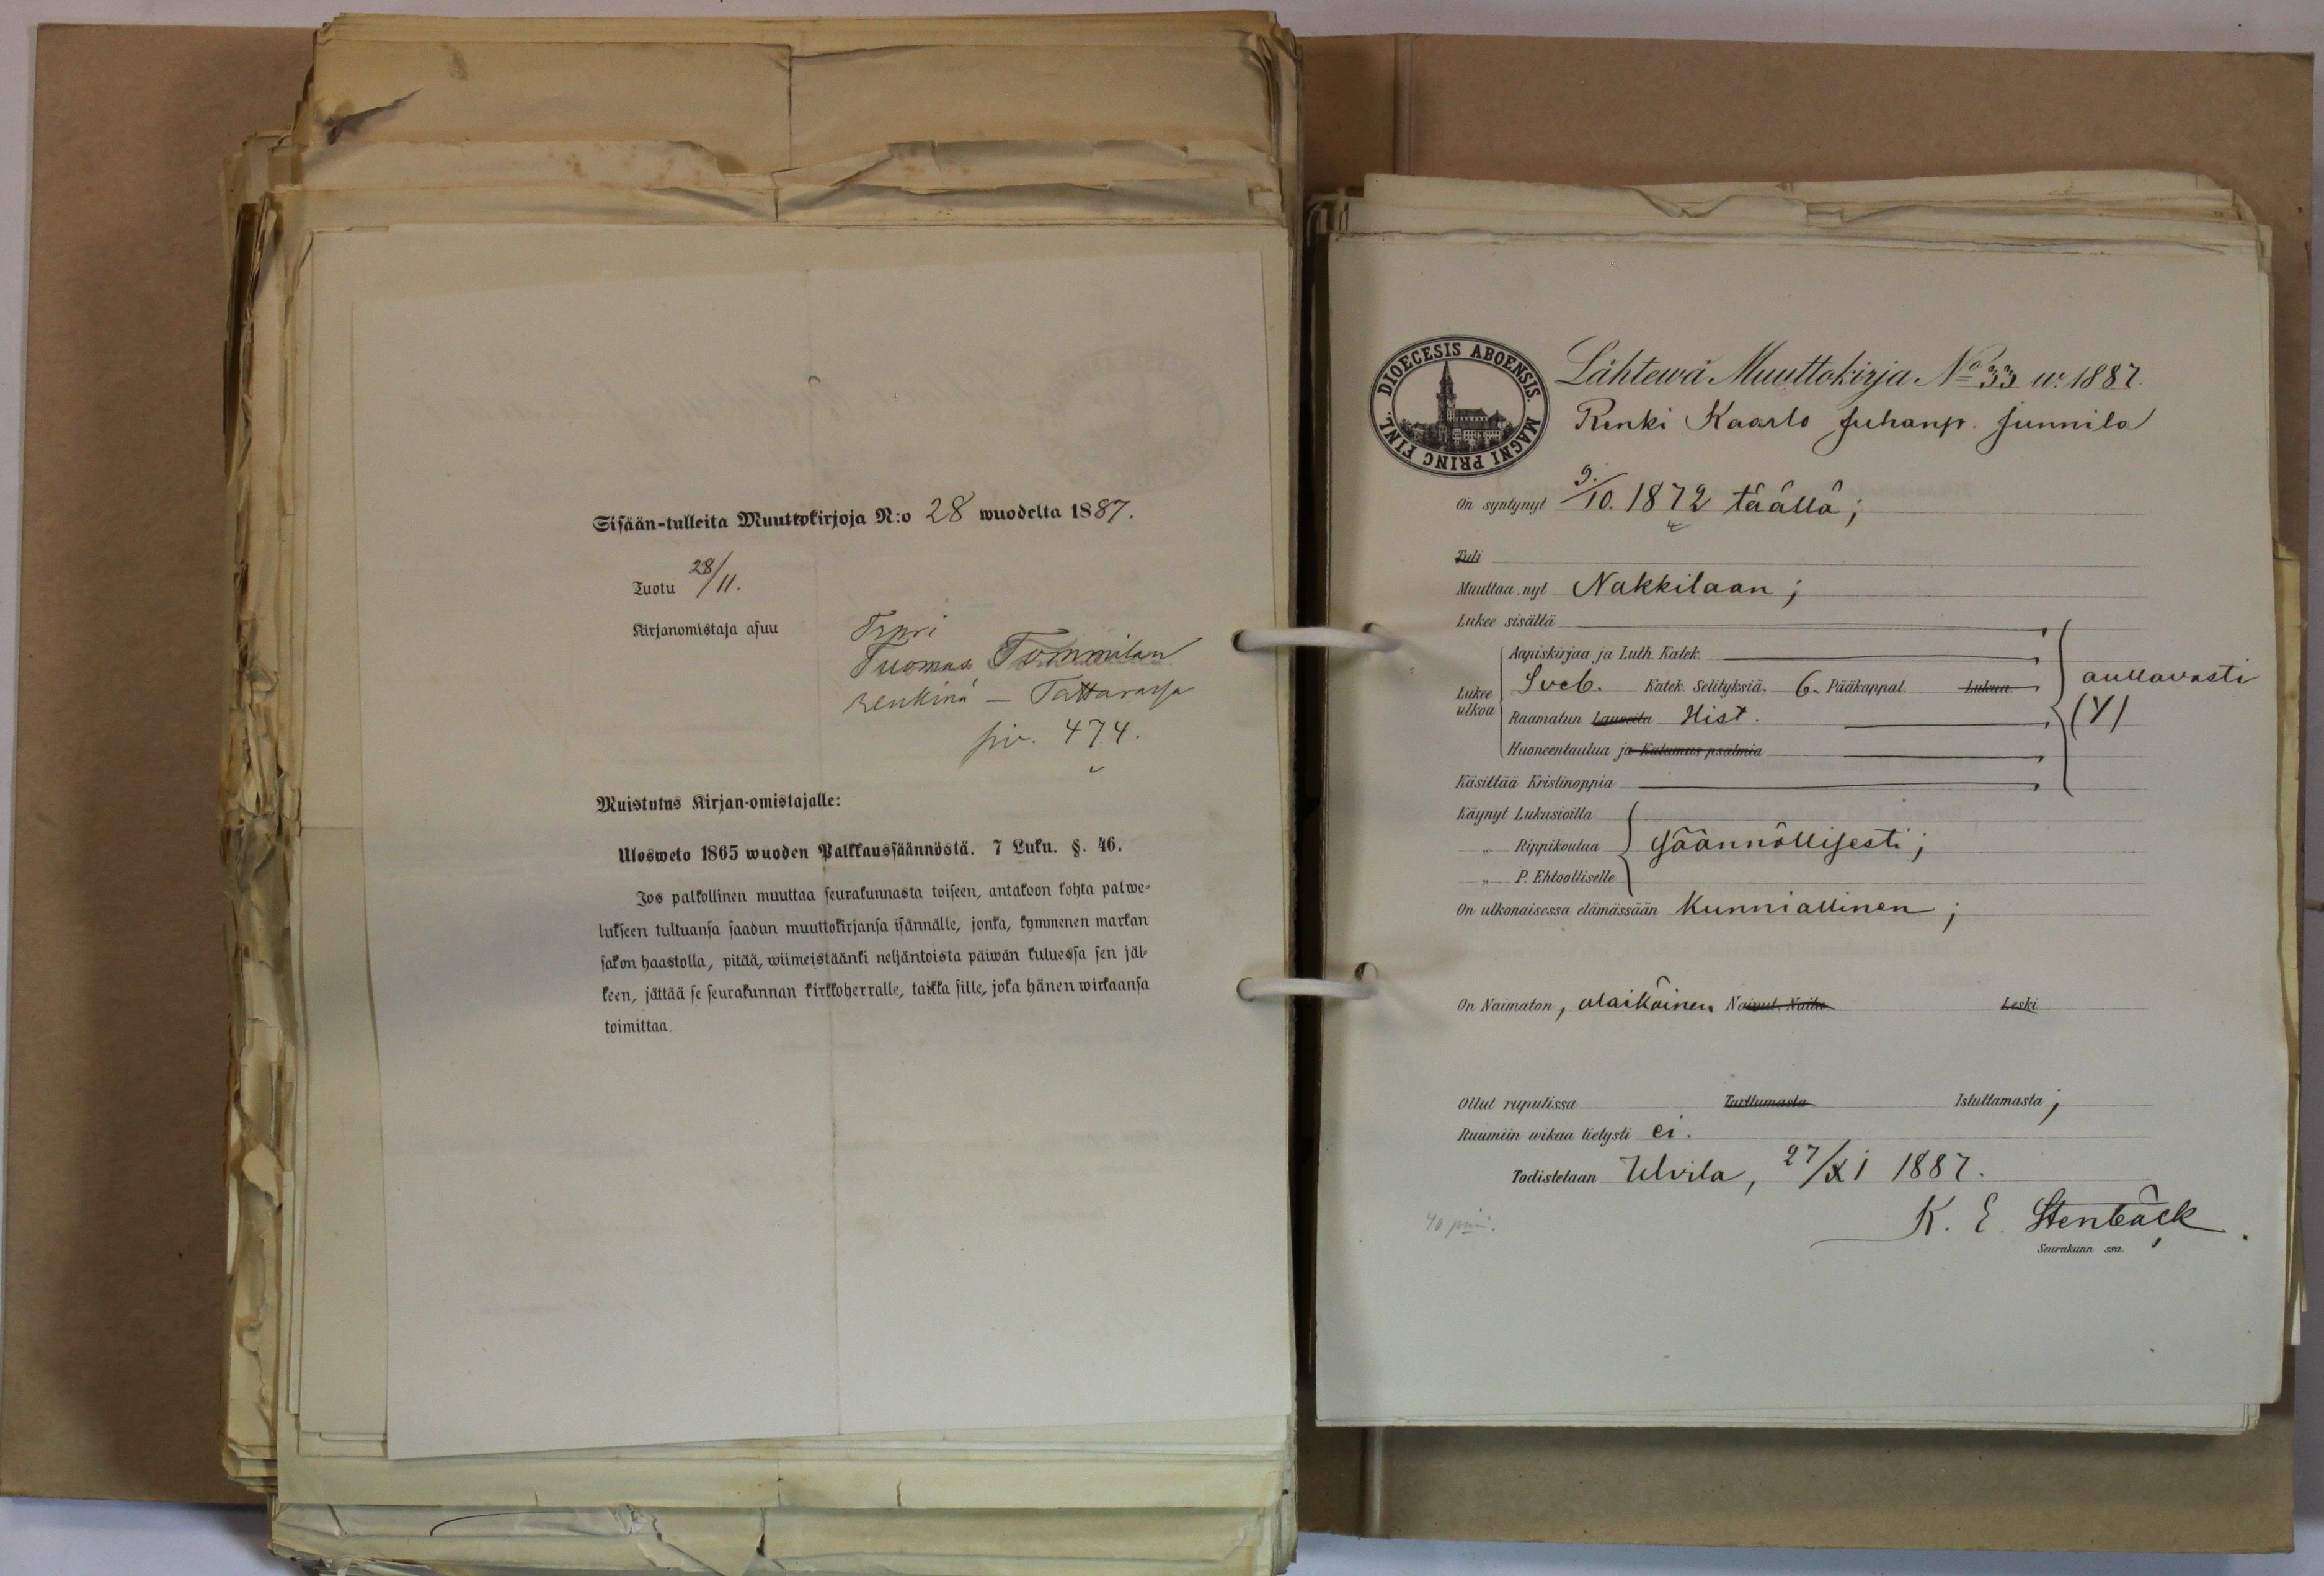 Sisään-tulleita Muuttokirjoja N:o 28 wuodelta 1887.
Tuotu 28/11.
Kirjanomistaja asuu
Tuomas Tommilan
renkinä — Tattarassa
siv. 474.
Muistutus Kirjan-omistajalle:
Ulosweto 1865 wuoden Palkkaussäännöstä. 7 Luku. §. 46.
Jos palkollinen muuttaa seurakunnasta toiseen, antakoon kohta palwe-
lukseen tultuansa saadun muuttokirjansa isännälle, jonka, kymmenen markan
sakon haastolla, pitää, wiimeistäänki neljäntoista päiwän kuluessa sen jäl-
keen, jättää se seurakunnan kirkkoherralle, taikka sille, joka hänen wirkaansa
toimittaa.
DIOECESIS ABOENSIS. MAGNI PRINC FINL.
Lähtewä Muuttokirja No 33 w. 1887.
Renki Kaarlo Juhanp. Junnila
On syntynyt 9./10. 1872 täällä;
Tuli
Muuttaa nyt Nakkilaan;
Lukee sisältä
Aapiskirjaa ja Luth. Katek.
Lukee ulkoa
Sveb. Katek. Selityksiä, 6. Pääkappal. Lukua.
auttavasti
Raamatun Lauseita Hist.
(Y)
Huoneentaulua ja Katumus psalmia
Käsittää Kristinoppia
Käynyt Lukusioilla
„ Rippikoulua säännöllisesti;
„ P. Ehtoolliselle
On ulkonaisessa elämässään Kunniallinen;
On Naimaton, alaikäinen Nainut, Naitu Leski
Ollut ruputissa Tarttumasta Istuttamasta;
Ruumiin wikaa tietysti ei.
Todistetaan Ulvila, 27/XI 1887.
K. E. Stenbäck
Seurakunn ssa.